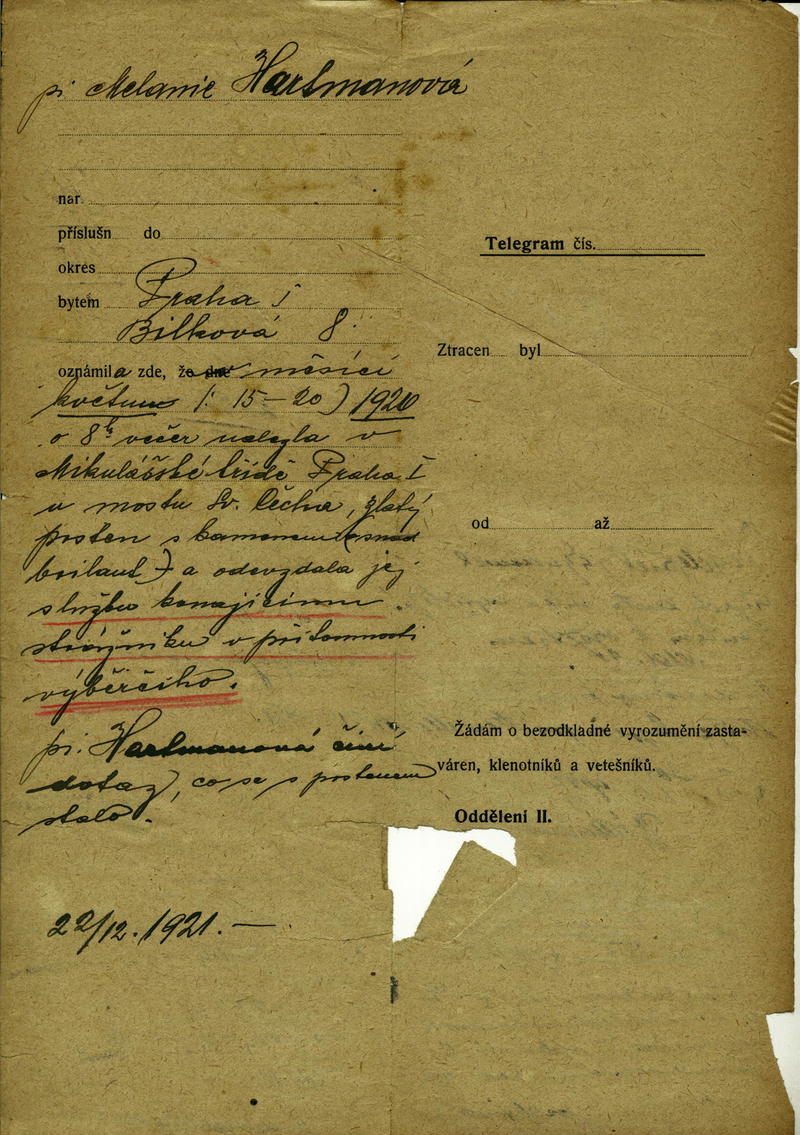 pí Melanie Hartmanová
nar.
příslušn do
okres
bytem Praha I
Bílková 8.
oznámila zde, že dne v měsíci
květnu (: 15–20) 1920
o 8h večer nalezla v
Mikulášské třídě Praha I
u mostu Sv. Čecha, zlatý
prsten s kamenem (snad
briland) a odevzdala jej
službu konajícímu
strážníku v přítomnosti
výběrčího.
pí. Hartmanová činí
dotaz, co se s prstenem
stalo.
22/12. 1921. —
Telegram čís.
Ztracen byl
od až
Žádám o bezodkladné vyrozumění zasta-
váren, klenotníků a vetešníků.
Oddělení II.